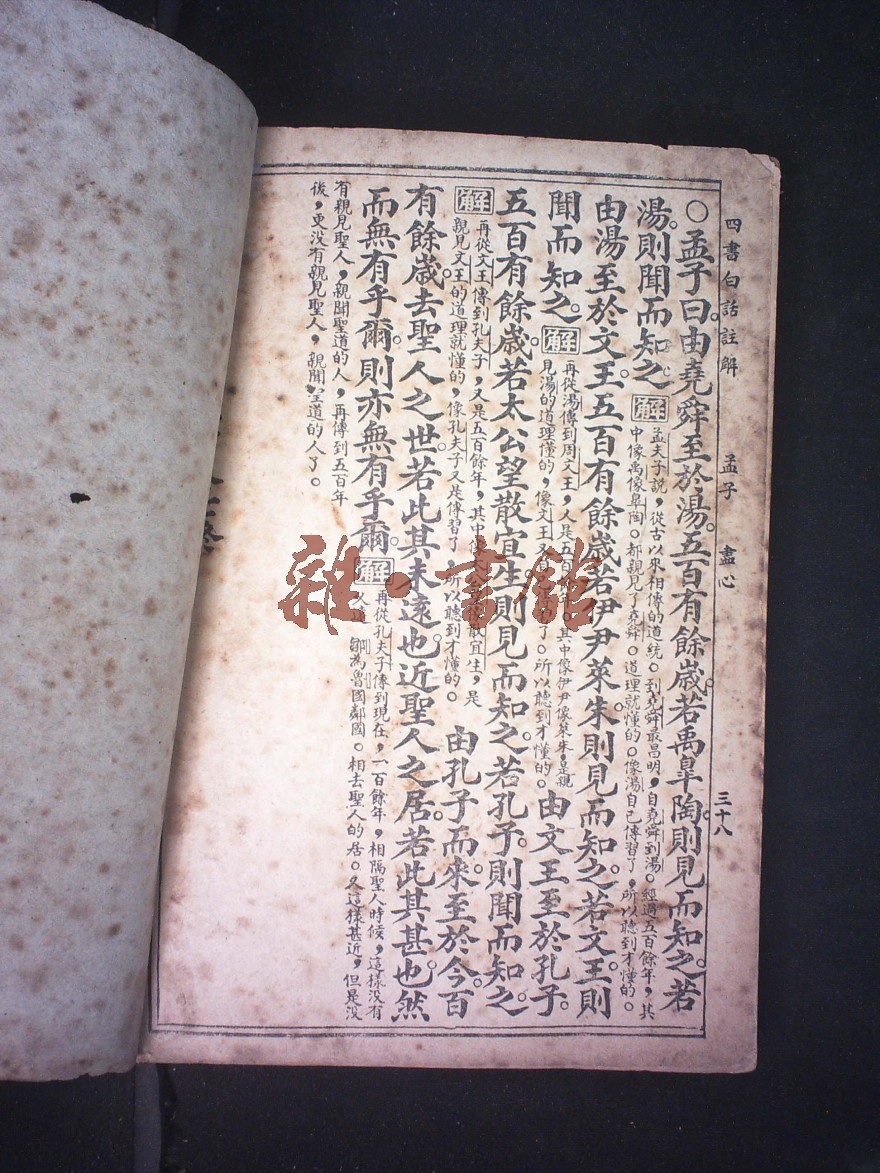 四書白話註解　孟子　盡心　三十八
○孟子曰。由堯舜至於湯。五百有餘歲。若禹皐陶。則見而知之。若
湯。則聞而知之。解孟夫子說，從古以來相傳的道統。到堯舜最昌明，自堯舜到湯。經過五百餘年，其
中像禹像皐陶。都親見了堯舜。道理就懂的。像湯自己傳習了，所以聽到才懂的。
由湯至於文王。五百有餘歲。若伊尹萊朱。則見而知之。若文王。則
聞而知之。解再從湯傳到周文王，又是五百餘年。其中像伊尹像萊朱，是親
見湯的道理懂的，像文王又了。所以聽到才懂的。由文王至於孔子。
五百有餘歲。若太公望散宜生。則見而知之。若孔子。則聞而知之。
解再從文王傳到孔夫子，又是五百餘年，其中像散宜生，是
親見文王的道理就懂的，像孔夫子又是傳習了，所以聽到才懂的。由孔子而來。至於今。百
有餘歲。去聖人之世。若此其未遠也。近聖人之居。若此其甚也。然
而無有乎爾。則亦無有乎爾。解再從孔夫子傳到現在，一百餘年，相隔聖人時候，這樣沒有
久遠，鄒為魯國鄰國。相去聖人的居。又這樣甚近，但是沒
有親見聖人，親聞聖道的人，再傳到五百年
後，更没有親見聖人，親聞聖道的人了。
雜·書館